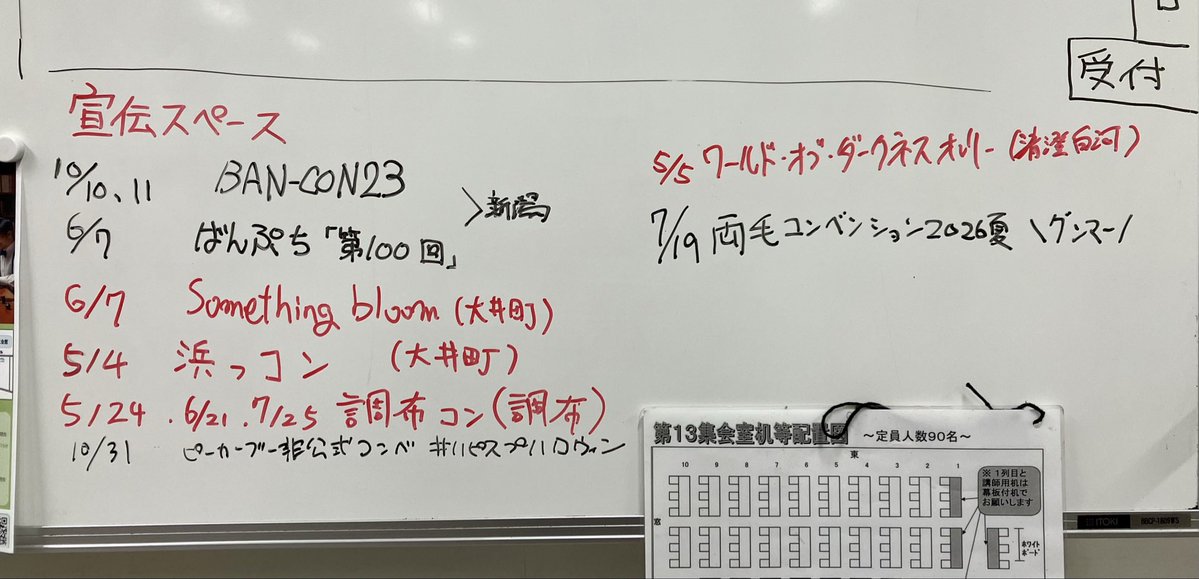 受付
宣伝スペース
10/10、11 BAN-CON23
6/7 ばんぷち「第100回」
＞新潟
6/7 Something bloom (大井町)
5/4 浜っコン (大井町)
5/24 .6/21 .7/25 調布コン(調布)
10/31 ピーカーブー非公式コンベ #ハピスプハロウィン
5/5 ワールド・オブ・ダークネスオンリー(清澄白河)
7/19 両毛コンベンション2026夏 \グンマー/
第13集会室机等配置図 ～定員人数90名～
東
10 9 8 7 6 5 4 3 2 1
※１列目と
講師用机は
幕板付机で
お願いします
窓
ホワイト
ボード
ITOKI